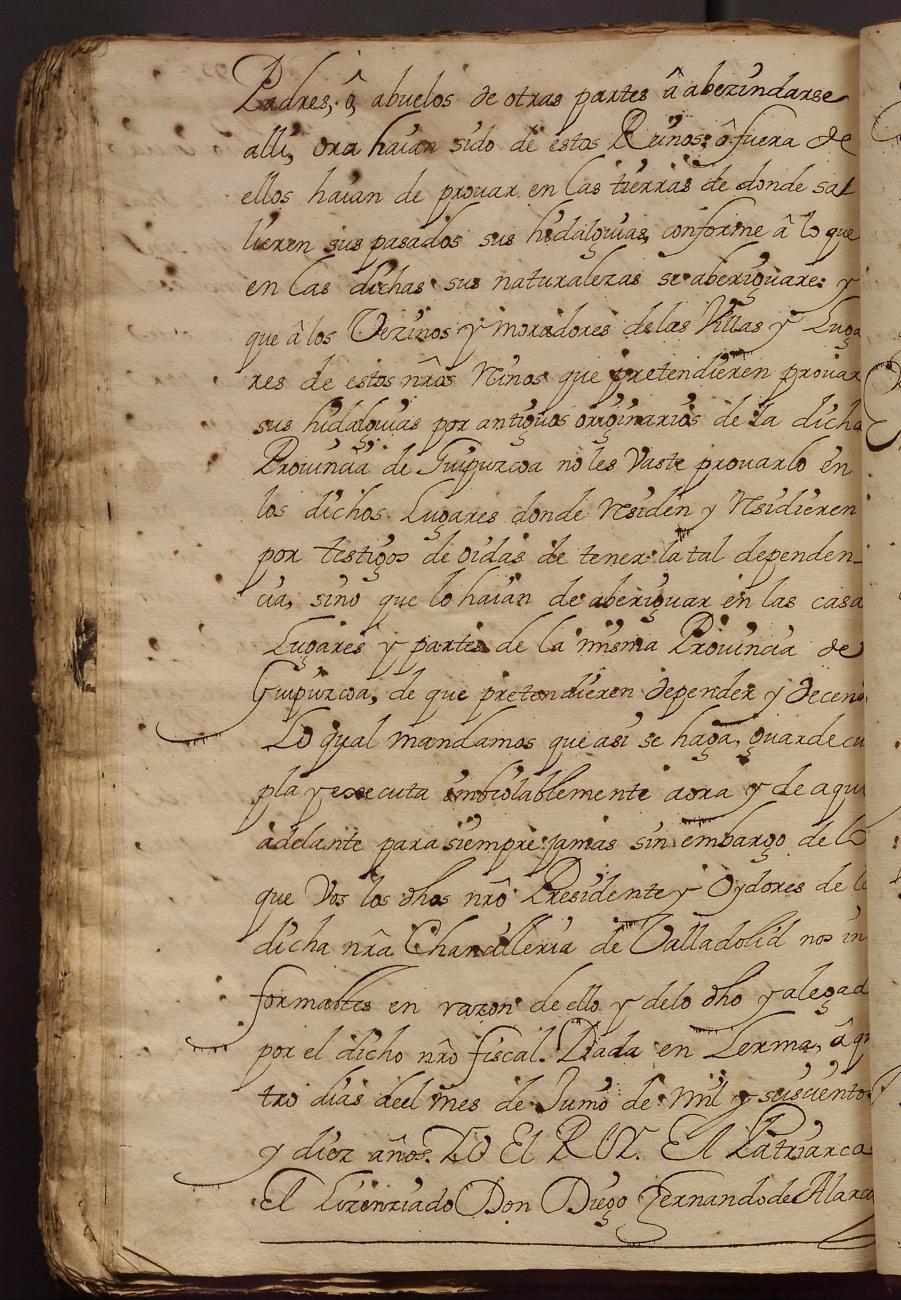 Padres, ô, abuelos de otras partes â abezindarse
alli, ora haian sido de estos Reinos: ô fuera de
ellos haian de provar en las tierras de donde sal
lieren sus pasados sus hidalguias, conforme â lo que
en las dichas sus naturalezas se aberiguare: y
que â los Vezinos y moradores de las Villas y Luga
res de estos nr̃os Rinos que pretendieren provar
sus hidalguias por antiguos originarios de la dicha
Provincia de Guipuzcoa no les vaste provarlo en
los dichos Lugares donde Residen y Residieren
por testigos de oidas de tener la tal dependen-
cia, sino que lo haian de aberiguar en las casa
Lugares y partes de la misma Provincia de
Guipuzcoa, de que pretendieren depender y decend
Lo qual mandamos que asi se haga, guarde cu
pla y executa imbiolablemente aora y de aqui
adelante para siempre jamas sin embargo de lo
que Vos los dhos nrõ Presidente y Oydores de la
dicha nrã Chancilleria de Valladolid nos in
formastes en razon de ello y de lo dho y alegad
por el dicho nrõ fiscal. Dada en Lerma, â qu
tro dias del mes de Junio de mil y seiscientos
y diez años. YO EL REY. El Patriarca
El Lizenziado Don Diego Fernando de Alarco